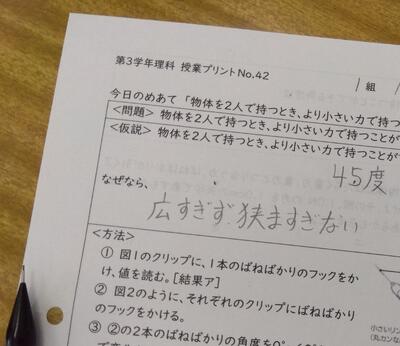 第3学年理科 授業プリントNo.42
/ 組 /
今日のめあて 「物体を2人で持つとき、より小さい力で持つ
<問題> 物体を2人で持つとき、より小さい力で持つことが
<仮説> 物体を2人で持つとき、より小さい力で持つことが
45度
なぜなら、
広すぎず、狭まぎない
<方法>
① 図1のクリップに、1本のばねばかりのフックをか
け、値を読む。[結果ア]
② 図2のように、それぞれのクリップにばねばかり
のフックをかける。
③ ②の2本のばねばかりの角度を0°
小さいリン
(丸カンなど